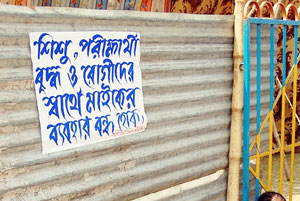 শিশু, পরীক্ষার্থী
বৃদ্ধ ও রোগীদের
স্বার্থে মাইকের
ব্যবহার বন্ধ হোক,